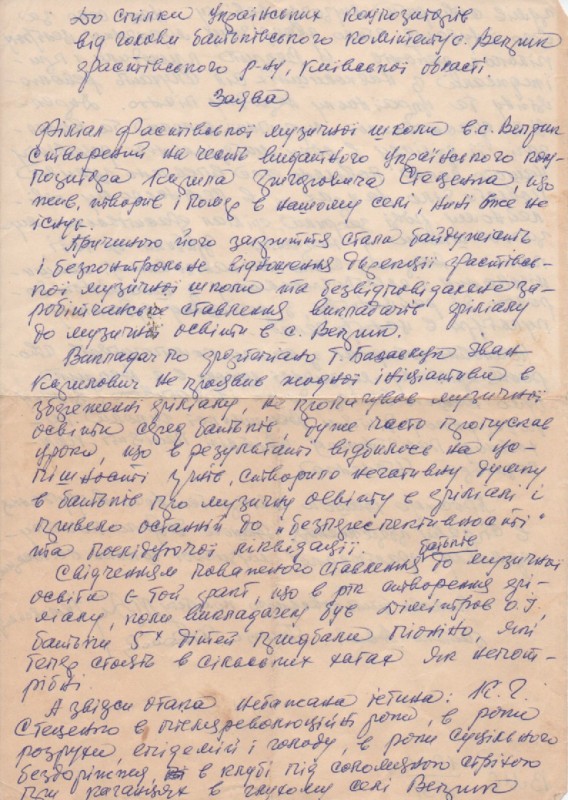 До спілки Українських композиторів
від голови батьківського комітету с. Веприк
Фастівського р-ну, Київської області.
Заява
Філіал Фастівської музичної школи в с. Веприк
створений на честь видатного Українського ком-
позитора Кирила Григоровича Стеценка, що
жив, творив і помер в нашому селі, нині вже не
існує.
Причиною його закриття стала байдужість
і безконтрольне відношення дирекції Фастівсь-
кої музичної школи та безвідповідальне за-
робітчанське ставлення викладачів філіалу
до музичної освіти в с. Веприк.
Викладач по фортепіано т. Іван
Кирилович не проявив жодної ініціативи в
збереженні філіалу, не пропагував музичної
освіти серед батьків, дуже часто пропускав
уроки, що в результаті відбилось на ус-
пішності учнів, створило негативну думку
в батьків про музичну освіту в філіалі і
привело останній до "безперспективності"
та послідуючої ліквідації.
батьків
Свідченням поважного ставлення до музичної
освіти є той факт, що в рік створення фі-
ліалу, коли викладачем був Дімітров О.І,
батьки 5х дітей придбали піаніно, які
тепер стоять в сільських хатах як непот-
рібні.
А звідси отака неписана істина: К. Г.
Стеценко в післяреволюційні роки, в роки
розрухи, епідемій і голоду, в роки суцільного
бездоріжжя, в клубі під солом'яною стріхою
при каганцях в глухому селі Веприк